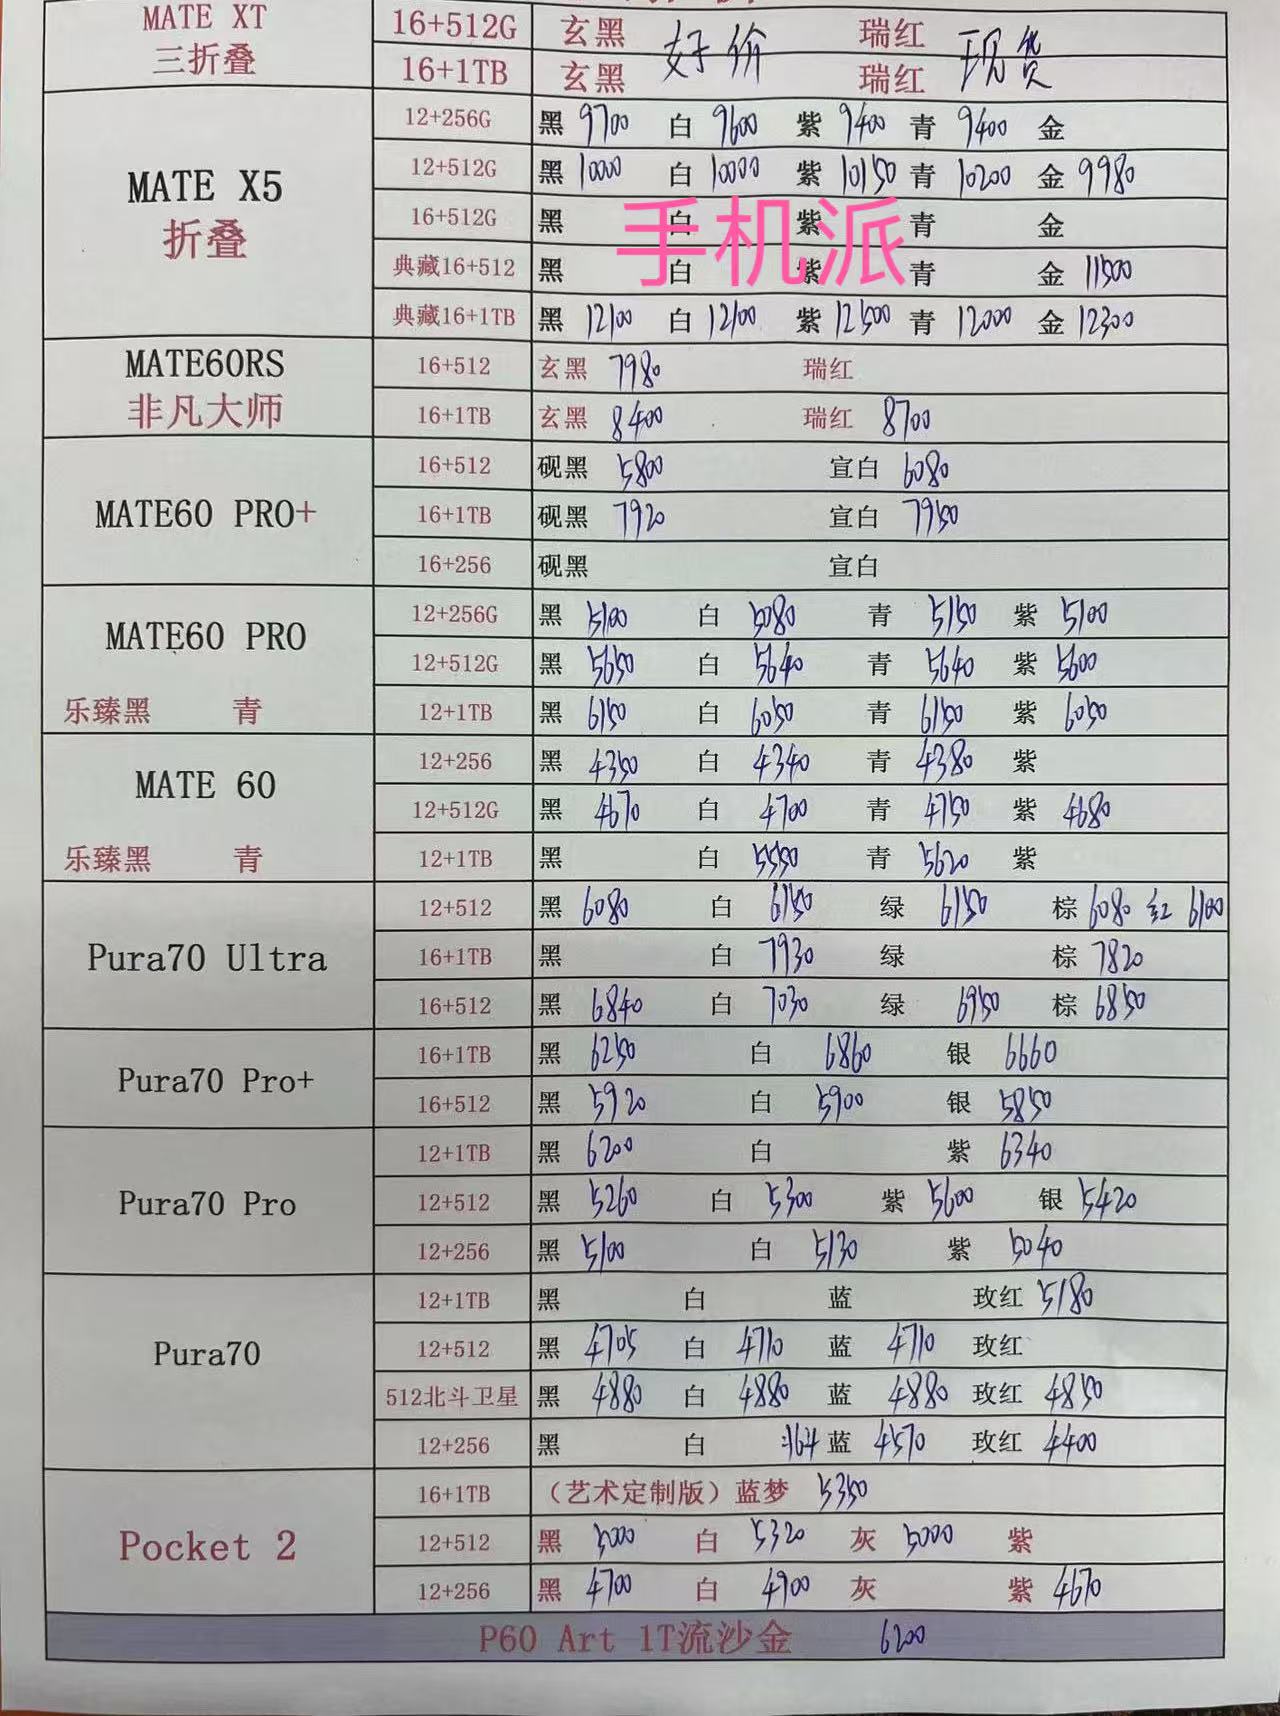 MATE XT 16+512G 玄黑 好价 瑞红 现货
三折叠 16+1TB 玄黑 瑞红
MATE X5 12+256G 黑 9700 白 9600 紫 9400 青 9400 金
折叠 12+512G 黑 10000 白 10000 紫 10150 青 10200 金 9980
16+512G 黑 白 紫 青 金
手机派
典藏16+512 黑 白 紫 青 金 11500
典藏16+1TB 黑 12100 白 12100 紫 12500 青 12000 金 12300
MATE60RS 16+512 玄黑 7980 瑞红
非凡大师 16+1TB 玄黑 8400 瑞红 8700
MATE60 PRO+ 16+512 砚黑 5800 宣白 6080
16+1TB 砚黑 7920 宣白 7950
16+256 砚黑 宣白
MATE60 PRO 12+256G 黑 5100 白 5080 青 5150 紫 5100
12+512G 黑 5650 白 5640 青 5640 紫 5600
乐臻黑 青 12+1TB 黑 6150 白 6050 青 6150 紫 6050
MATE 60 12+256 黑 4350 白 4340 青 4380 紫
12+512G 黑 4670 白 4700 青 4750 紫 4680
乐臻黑 青 12+1TB 黑 白 5550 青 5620 紫
Pura70 Ultra 12+512 黑 6080 白 6150 绿 6150 棕 6080 红 6100
16+1TB 黑 白 7930 绿 棕 7820
16+512 黑 6840 白 7030 绿 6950 棕 6850
Pura70 Pro+ 16+1TB 黑 6250 白 6860 银 6660
16+512 黑 5920 白 5900 银 5850
Pura70 Pro 12+1TB 黑 6200 白 紫 6340
12+512 黑 5260 白 5300 紫 5600 银 5420
12+256 黑 5100 白 5130 紫 5040
Pura70 12+1TB 黑 白 蓝 玫红 5180
12+512 黑 4705 白 4710 蓝 4710 玫红
512北斗卫星 黑 4880 白 4880 蓝 4880 玫红 4850
12+256 黑 白 蓝 4570 玫红 4400
Pocket 2 16+1TB （艺术定制版）蓝梦 5350
12+512 黑 5000 白 5320 灰 5000 紫
12+256 黑 4700 白 4900 灰 紫 4670
P60 Art 1T流沙金 6200